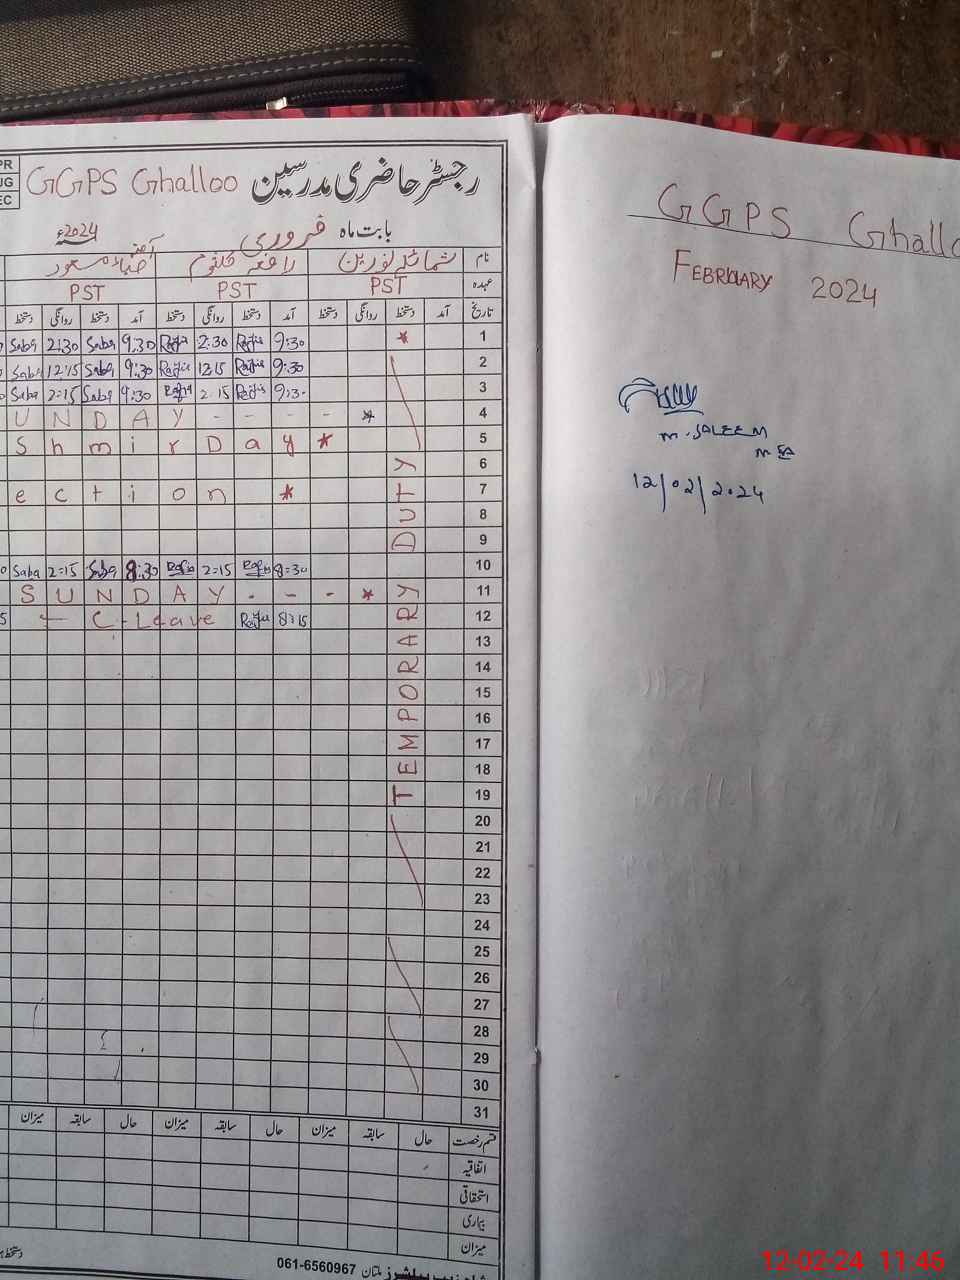 PR
UG
EC
GGPS Ghalloo رجسٹر حاضری مدرسین
بابت ماہ فروری 2024ء
نام شمائلہ نورین رافعہ کلثوم
عہدہ PST PST PST
تاریخ آمد دستخط روانگی دستخط آمد دستخط روانگی دستخط آمد دستخط روانگی دستخط
1 * 9:30 2:30 9:30 Saba 2:30 Saba
2 9:30 9:30 Saba 12:15 Saba
3 9:30 2:15 9:30 Saba 2:15 Saba
4 UNDAY - - - - *
5 Shmir Day *
6
7 ection *
8
9
10 8:30 2:15 8:30 Saba 2:15 Saba
11 SUNDAY - - - *
12 C-Leave 8:15
13
14
15
16
17
18
19
20
21
22
23
24
25
26
27
28
29
30
31
TEMPORARY DUTY
قسم رخصت حال سابقہ میزان حال سابقہ میزان حال سابقہ میزان
اتفاقیہ
استحقاقی
بیماری
میزان
061-6560967 ملتان
GGPS Ghallo
FEBRUARY 2024
M. SALEEM
12/02/2024
12-02-24 11:46